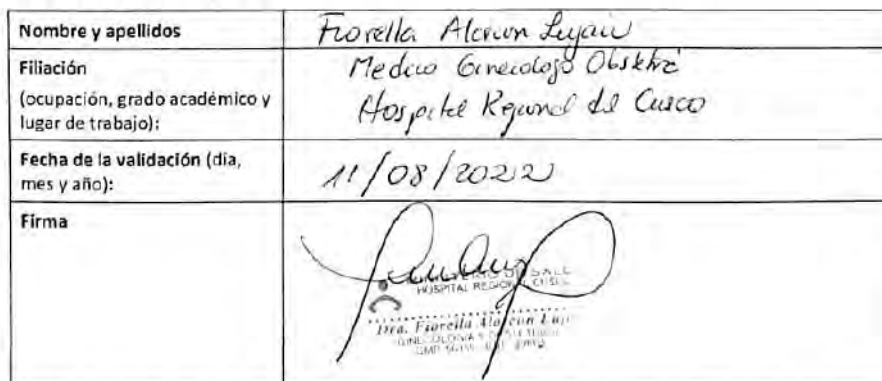 Nombre y apellidos
Fiorella Alarcon Lujan
Filiación
(ocupación, grado académico y
lugar de trabajo):
Medico Ginecologo Obstetra
Hospital Regional del Cusco
Fecha de la validación (día,
mes y año):
11/08/2022
Firma
HOSPITAL REGIONAL CUSCO
Dra. Fiorella Alarcon Luj